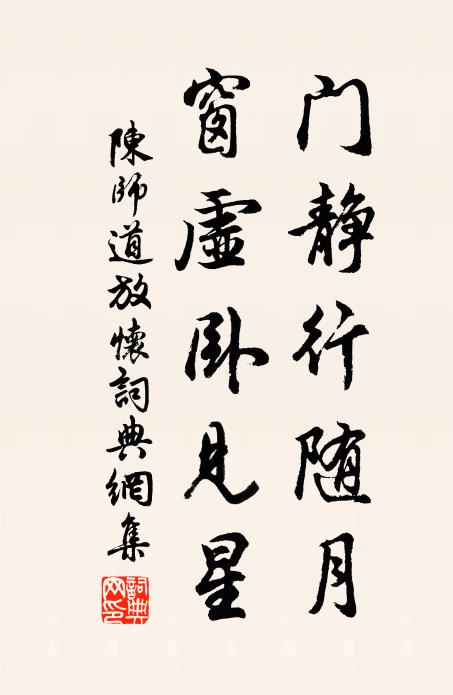 门静行随月
窗虚卧见星
陳師道放懷詞典網集
詞典网印